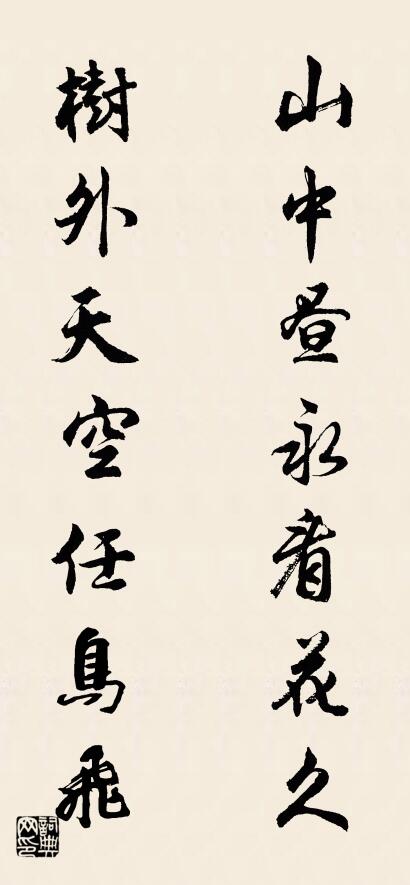 山中昼永看花久
樹外天空任鳥飛
詞典網印